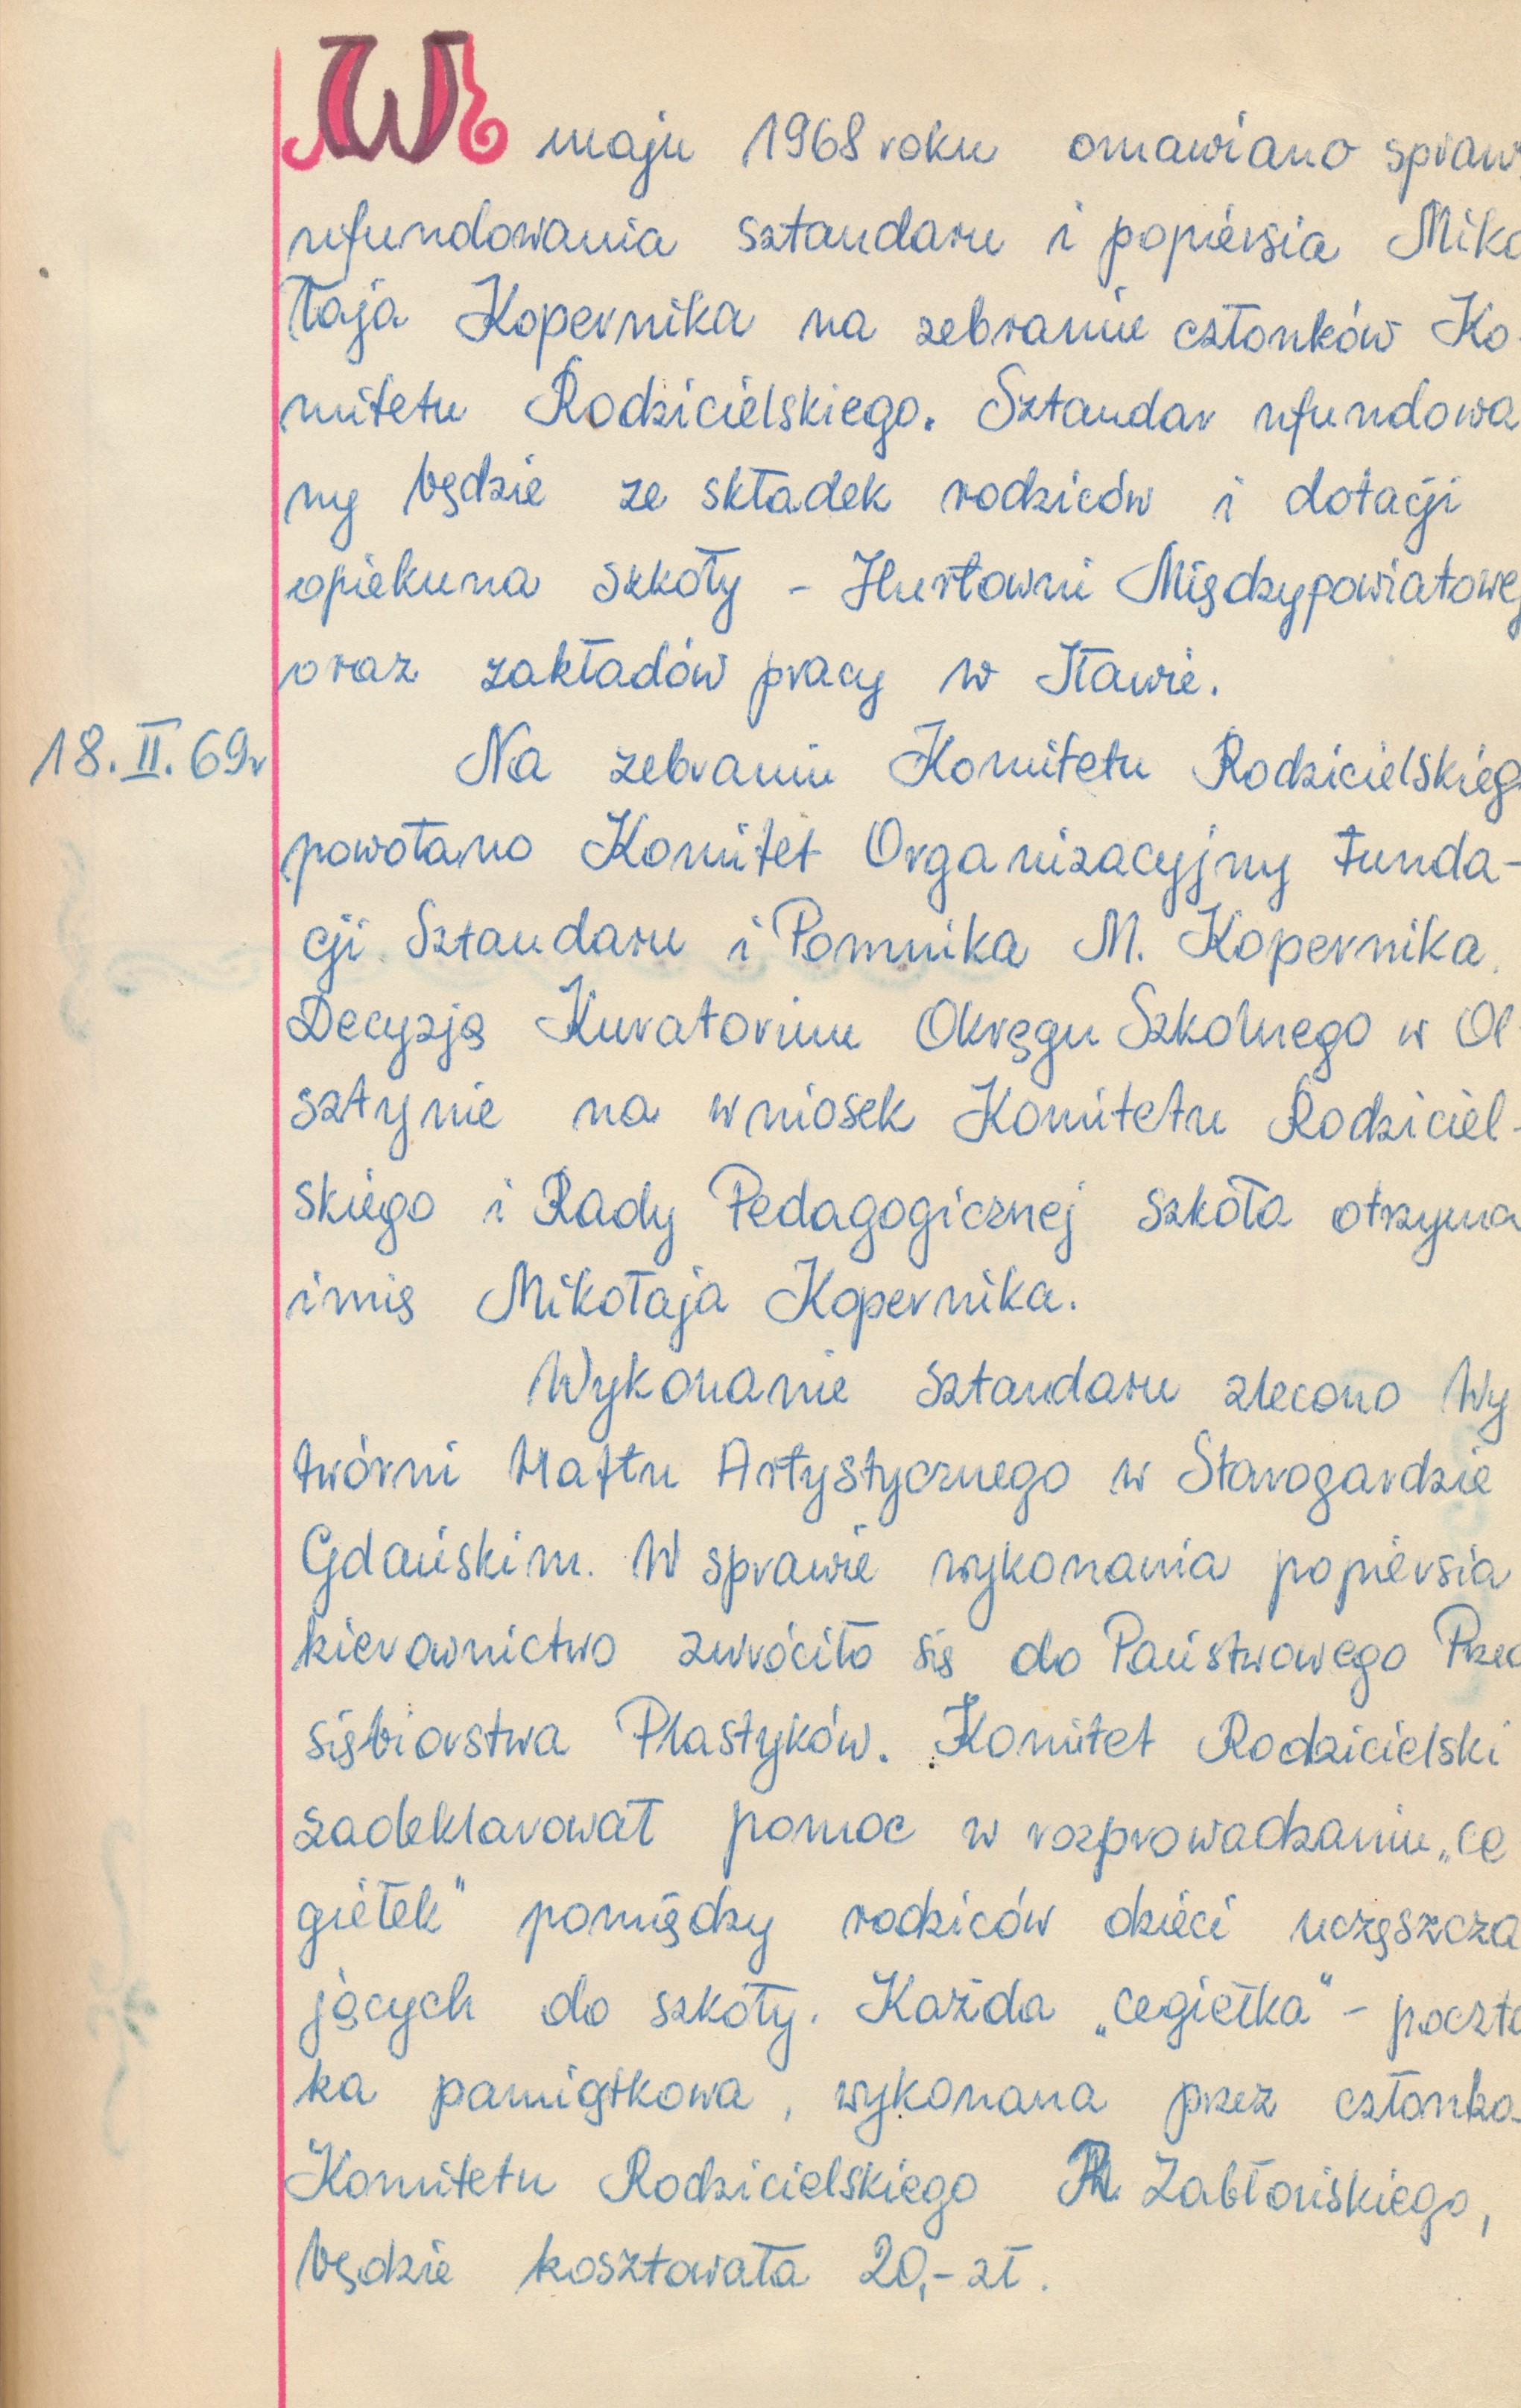 W maju 1968 roku omawiano spraw
ufundowania sztandaru i popiersia Miko
łaja Kopernika na zebraniu członków Ko-
mitetu Rodzicielskiego. Sztandar ufundowa
ny będzie ze składek rodziców i dotacji
opiekuna szkoły - Hurtowni Międzypowiatowej
oraz zakładów pracy w Iławie.
18. II. 69r
Na zebraniu Komitetu Rodzicielskieg
powołano Komitet Organizacyjny Funda-
cji Sztandaru i Pomnika M. Kopernika.
Decyzją Kuratorium Okręgu Szkolnego w Ol-
sztynie na wniosek Komitetu Rodziciel-
skiego i Rady Pedagogicznej szkoła otrzyma
imię Mikołaja Kopernika.
Wykonanie sztandaru zlecono Wy
twórni Haftu Artystycznego w Starogardzie
Gdańskim. W sprawie wykonania popiersia
kierownictwo zwróciło się do Państwowego Przed
siębiorstwa Plastyków. Komitet Rodzicielski
zadeklarował pomoc w rozprowadzaniu „ce
giełek" pomiędzy rodziców dzieci uczęszcza
jących do szkoły. Każda „cegiełka" - poczto
ka pamiątkowa, wykonana przez członka
Komitetu Rodzicielskiego Zabłońskiego,
będzie kosztowała 20,- zł.